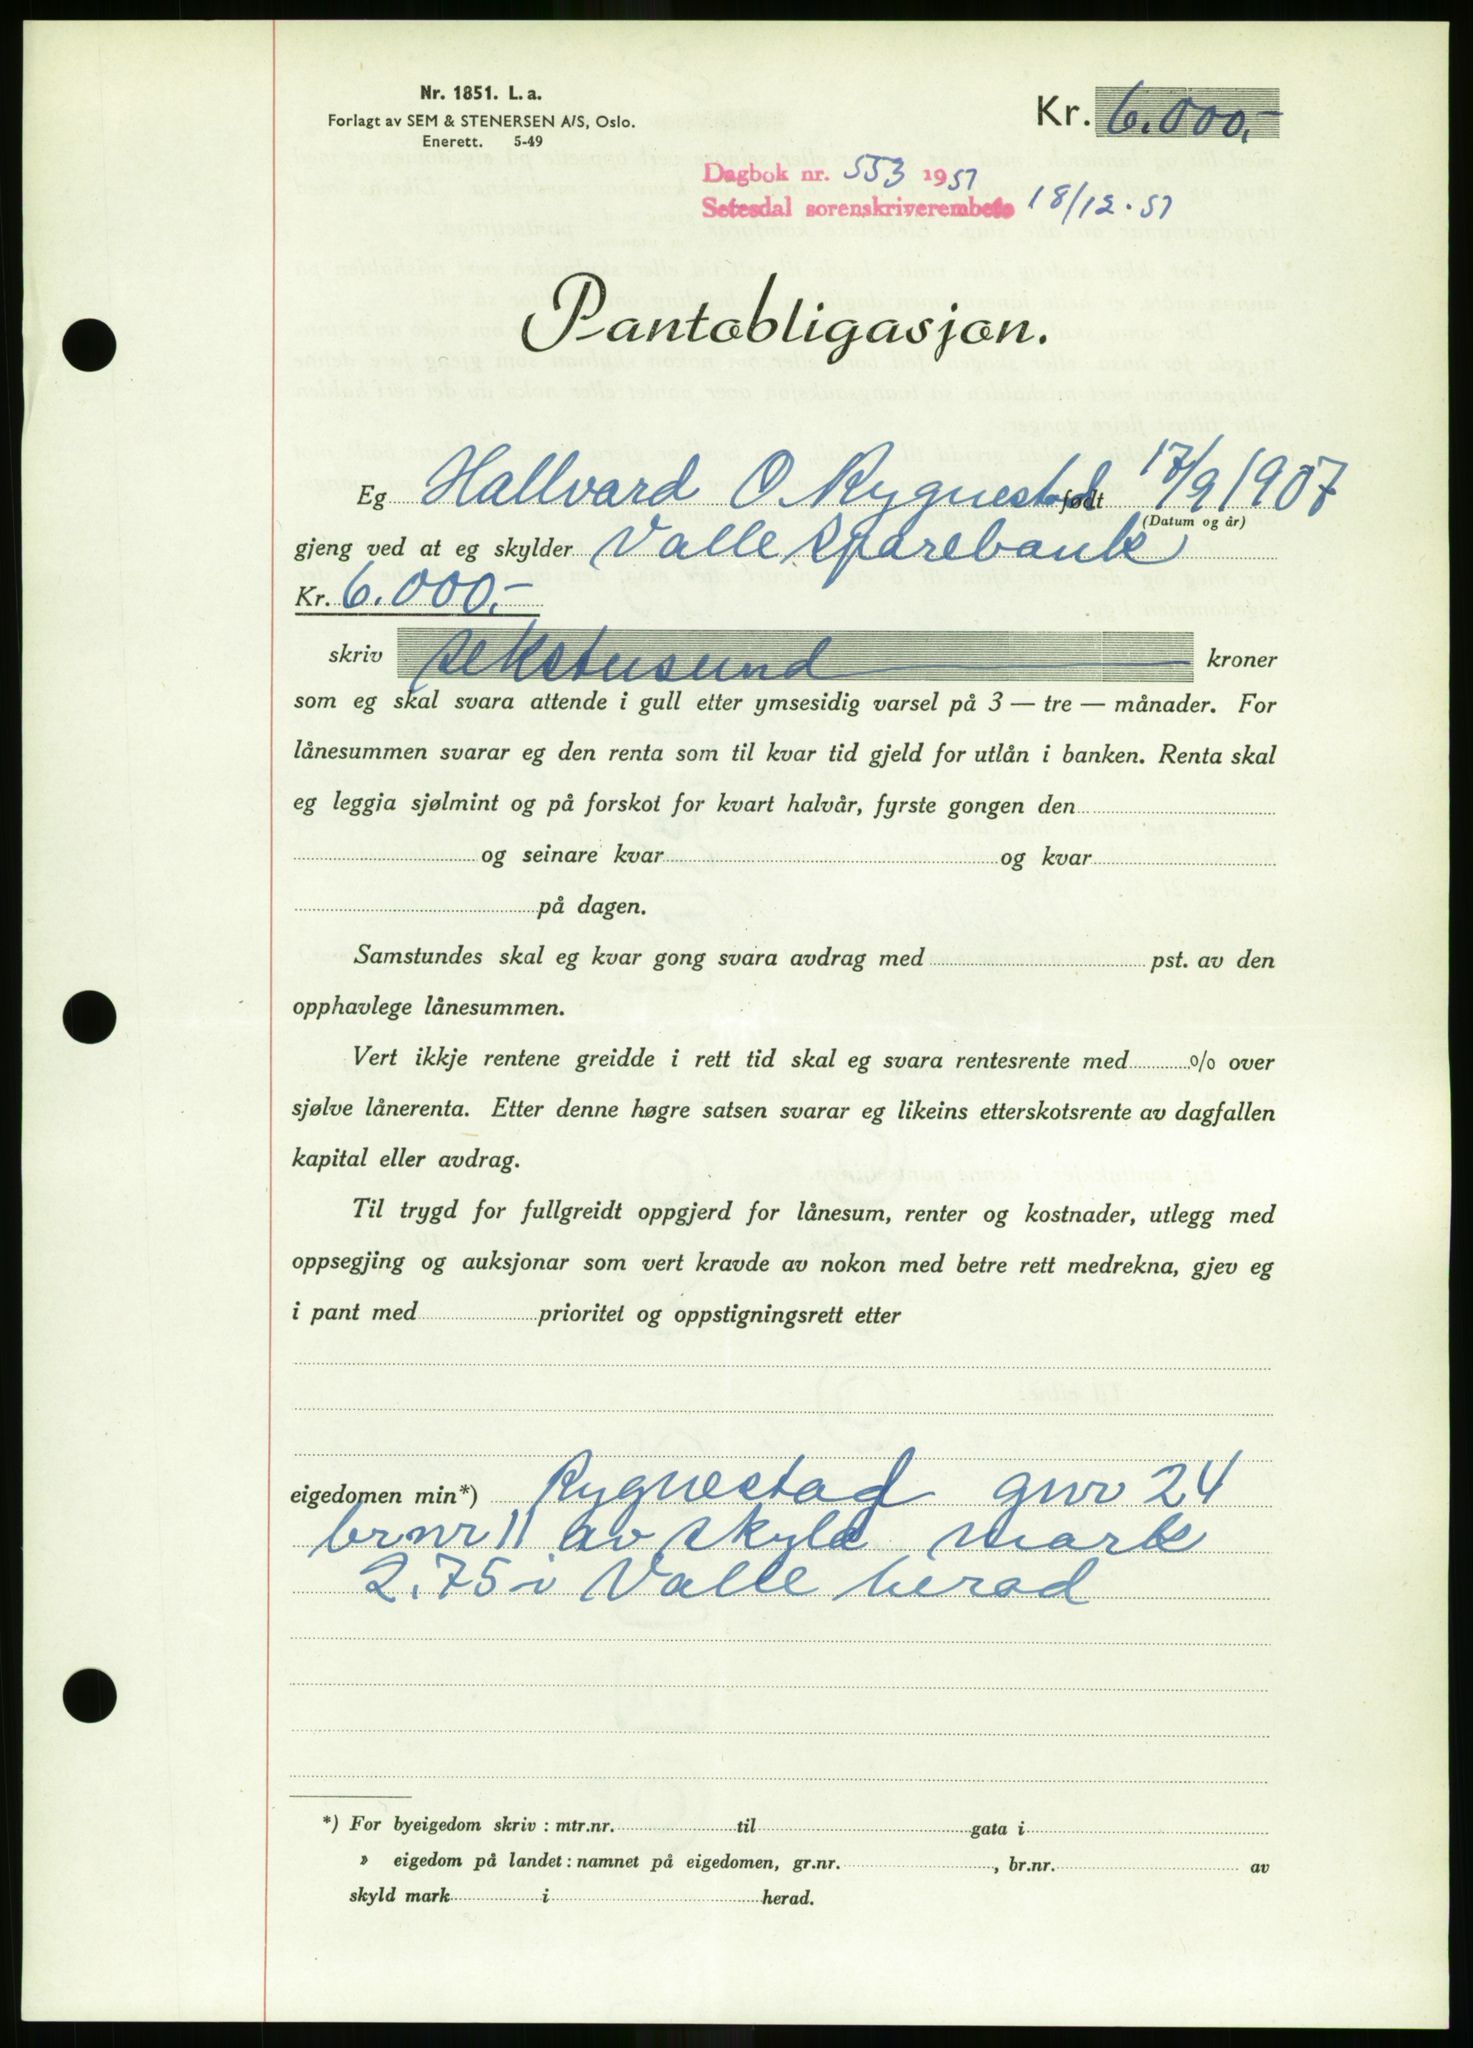 Nr. 1851. L. a.
Forlagt av SEM & STENERSEN A/S, Oslo.
Enerett. 5-49
Kr. 6.000,-
Dagbok nr. 553 1951
Setesdal sorenskriverembete 18/12.51
Pantobligasjon.
Eg Hallvard O. Rygnestad født 17/9 1907
(Datum og år)
gjeng ved at eg skylder Valle Sparebank
Kr. 6.000,-
skriv sekstusund kroner
som eg skal svara attende i gull etter ymsesidig varsel på 3 — tre — månader. For
lånesummen svarar eg den renta som til kvar tid gjeld for utlån i banken. Renta skal
eg leggja sjølmint og på forskot for kvart halvår, fyrste gongen den
og seinare kvar og kvar
på dagen.
Samstundes skal eg kvar gong svara avdrag med pst. av den
opphavlege lånesummen.
Vert ikkje rentene greidde i rett tid skal eg svara rentesrente med % over
sjølve lånerenta. Etter denne høgre satsen svarar eg likeins etterskotsrente av dagfallen
kapital eller avdrag.
Til trygd for fullgreidt oppgjerd for lånesum, renter og kostnader, utlegg med
oppsegjing og auksjonar som vert kravde av nokon med betre rett medrekna, gjev eg
i pant med prioritet og oppstigningsrett etter
eigedomen min*) Rygnestad gnr 24
brnr 11 av skyld mark
2.75 i Valle herad
*) For byeigedom skriv : mtr.nr. til gata i
» eigedom på landet : namnet på eigedomen, gr.nr. , br.nr. av
skyld mark i herad.